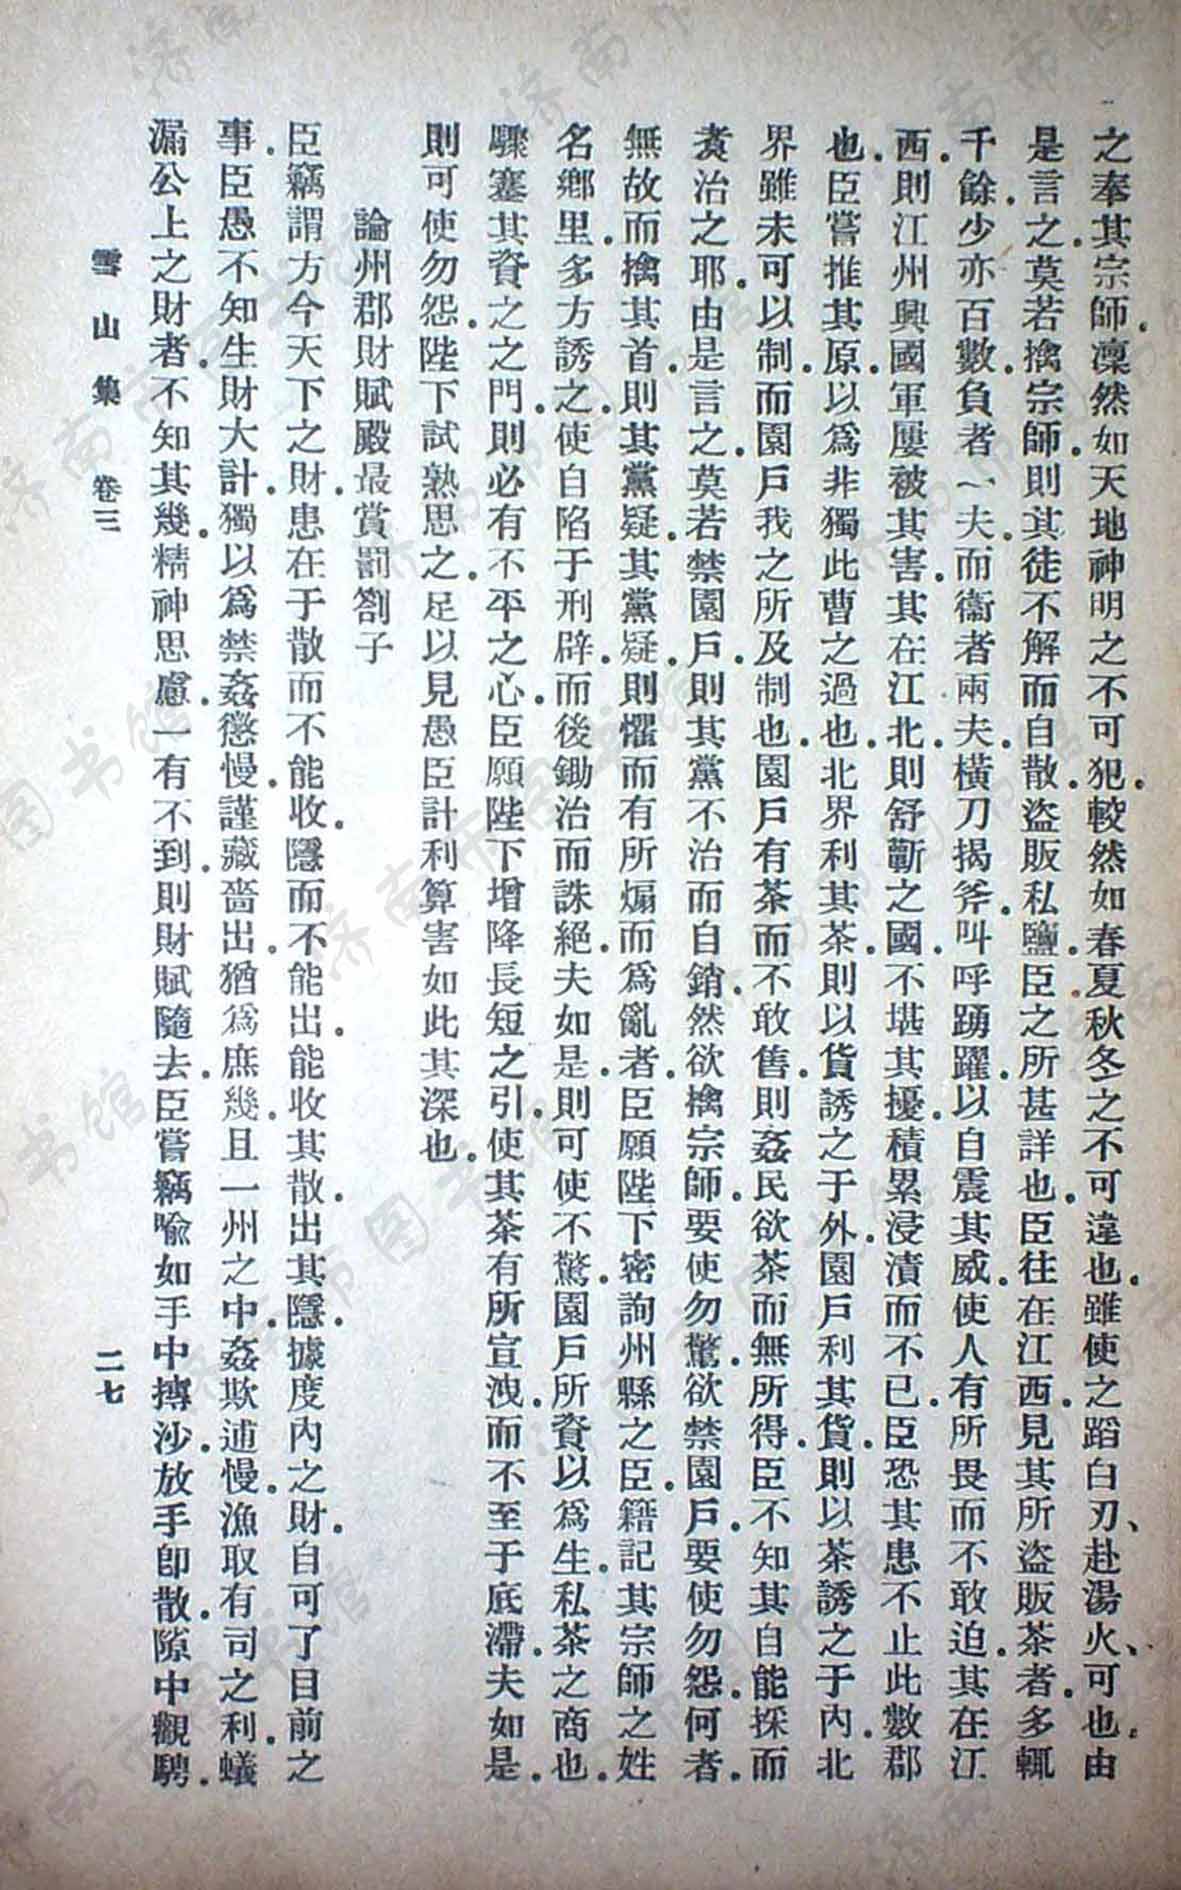 之奉其宗師。凜然如天地神明之不可犯。較然如春夏秋冬之不可違也。雖使之蹈白刃、赴湯火、可也。由
是言之。莫若擒宗師。則其徒不解而自散。盜販私鹽。臣之所甚詳也。臣往在江西。見其所盜販茶者。多輒
千餘。少亦百數。負者一夫。而衞者兩夫。橫刀揭斧。叫呼踴躍。以自震其威。使人有所畏而不敢迫。其在江
西。則江州興國軍屢被其害。其在江北。則舒蘄之國。不堪其擾。積累浸漬而不已。臣恐其患不止此數郡
也。臣嘗推其原。以爲非獨此曹之過也。北界利其茶。則以貨誘之于外。園戶利其貨。則以茶誘之于內。北
界雖未可以制。而園戶我之所及制也。園戶有茶而不敢售。則姦民欲茶而無所得。臣不知其自能採而
煑治之耶。由是言之。莫若禁園戶。則其黨不治而自銷。然欲擒宗師。要使勿驚。欲禁園戶。要使勿怨。何者。
無故而擒其首。則其黨疑。其黨疑。則懼而有所煽而爲亂者。臣願陛下密詢州縣之臣。籍記其宗師之姓
名鄉里。多方誘之。使自陷于刑辟。而後鋤治而誅絕。夫如是。則可使不驚。園戶所資以爲生。私茶之商也。
驟塞其資之之門。則必有不平之心。臣願陛下增降長短之引。使其茶有所宣洩。而不至于底滯。夫如是。
則可使勿怨。陛下試熟思之。足以見愚臣計利算害如此其深也。
論州郡財賦殿最賞罰劄子
臣竊謂方今天下之財。患在于散而不能收。隱而不能出。能收其散。出其隱。據度內之財。自可了目前之
事。臣愚不知生財大計。獨以爲禁姦懲慢。謹藏嗇出。猶爲庶幾。且一州之中。姦欺逋慢。漁取有司之利。蟻
漏公上之財者。不知其幾。精神思慮。一有不到。則財賦隨去。臣嘗竊喻如手中摶沙。放手卽散。隙中觀騁。
雪山集 卷三 二七